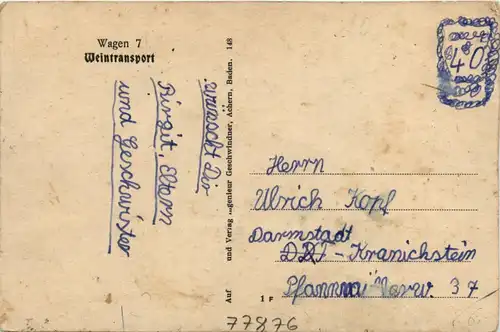 Wagen 7
Weintransport
wünscht Dir
Birgit, Eltern
und Geschwister
Auf und Verlag ...genieur Geschwindner, Achern, Baden. 148
40
Herrn
Ulrich Kopf
Darmstadt
Kranichstein
37
1 F
77876